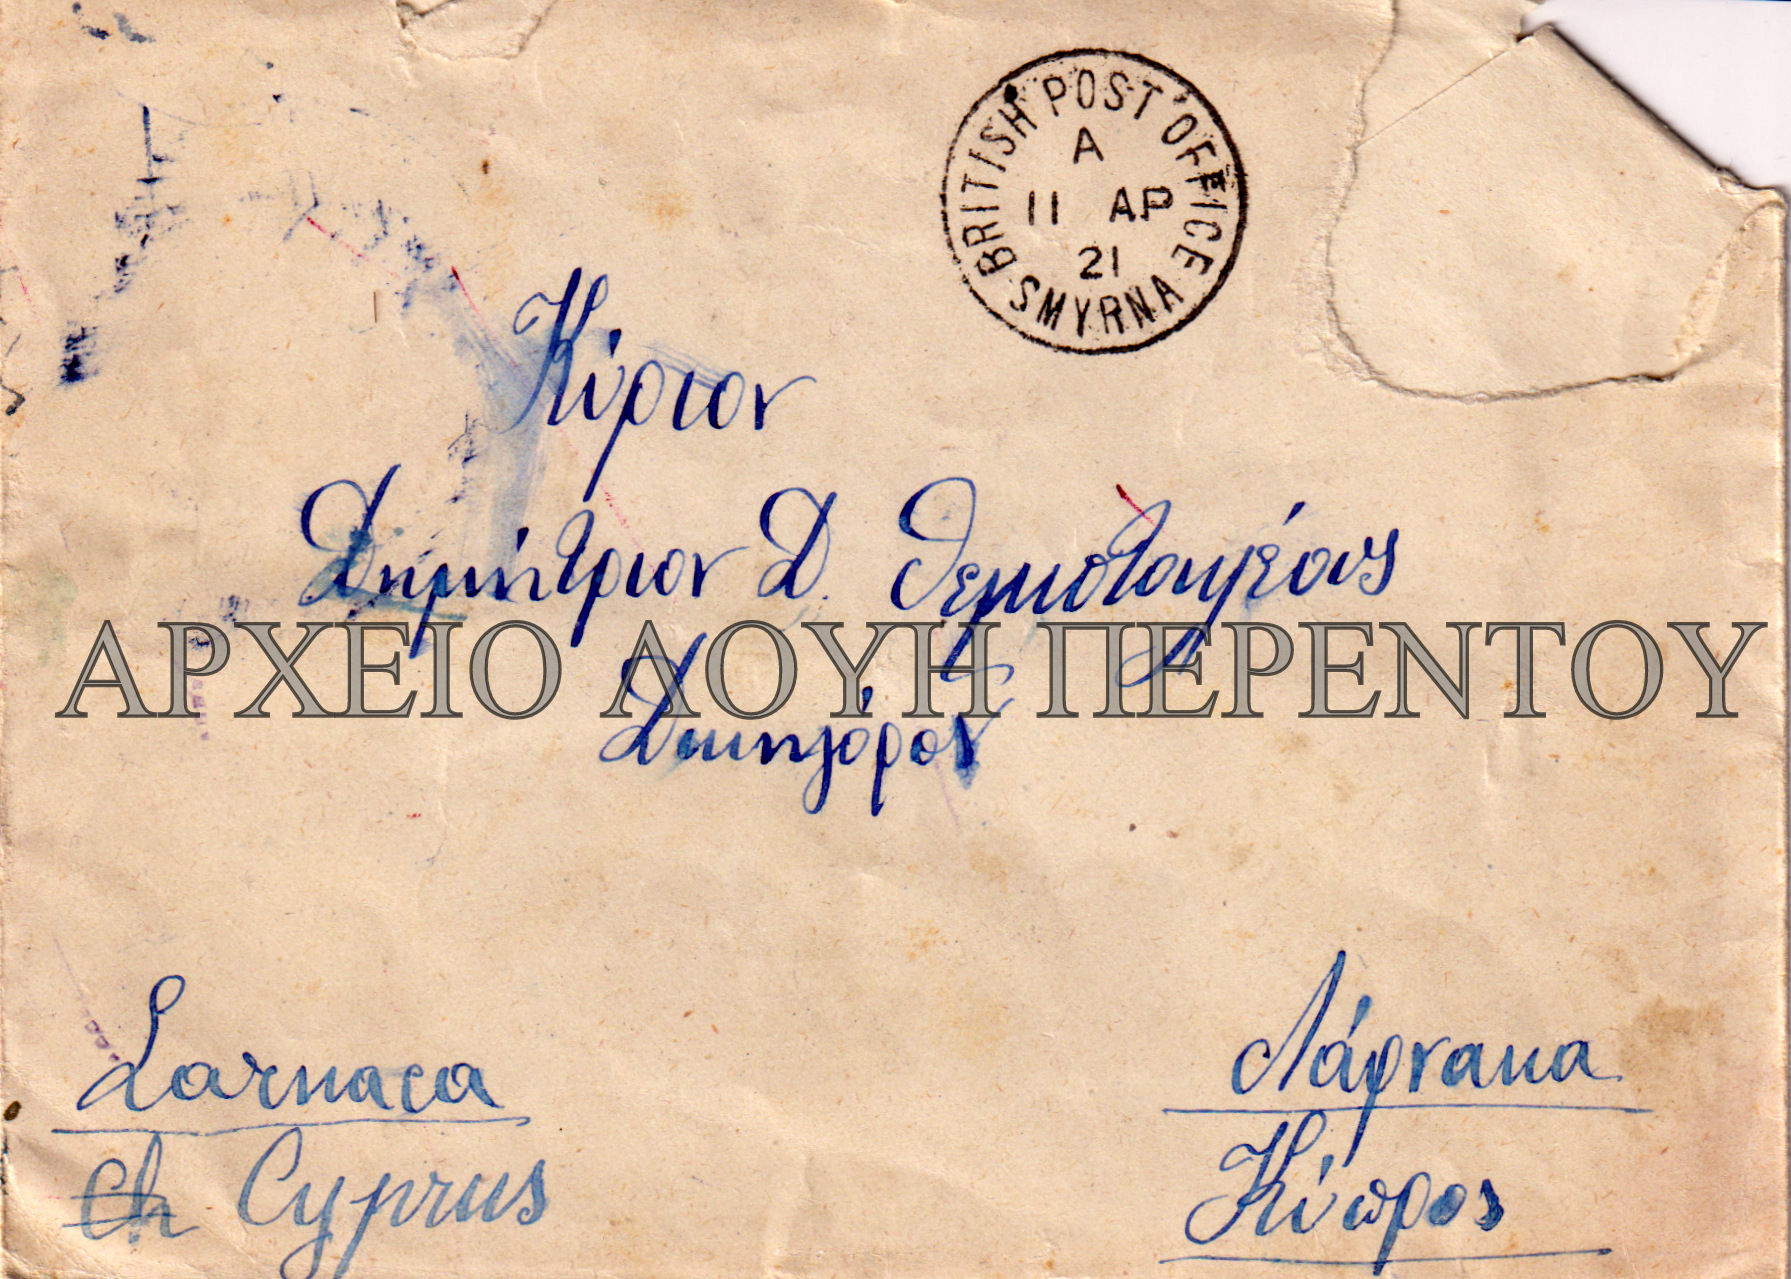 BRITISH POST OFFICE
A
11 AP
21
SMYRNA
Κύριον
Δημήτριον Δ. Θεμιστοκλέους
ΑΡΧΕΙΟ ΛΟΥΗ ΠΕΡΕΝΤΟΥ
Δικηγόρον
Larnaca
Ch Cyprus
Λάρνακα
Κύπρος